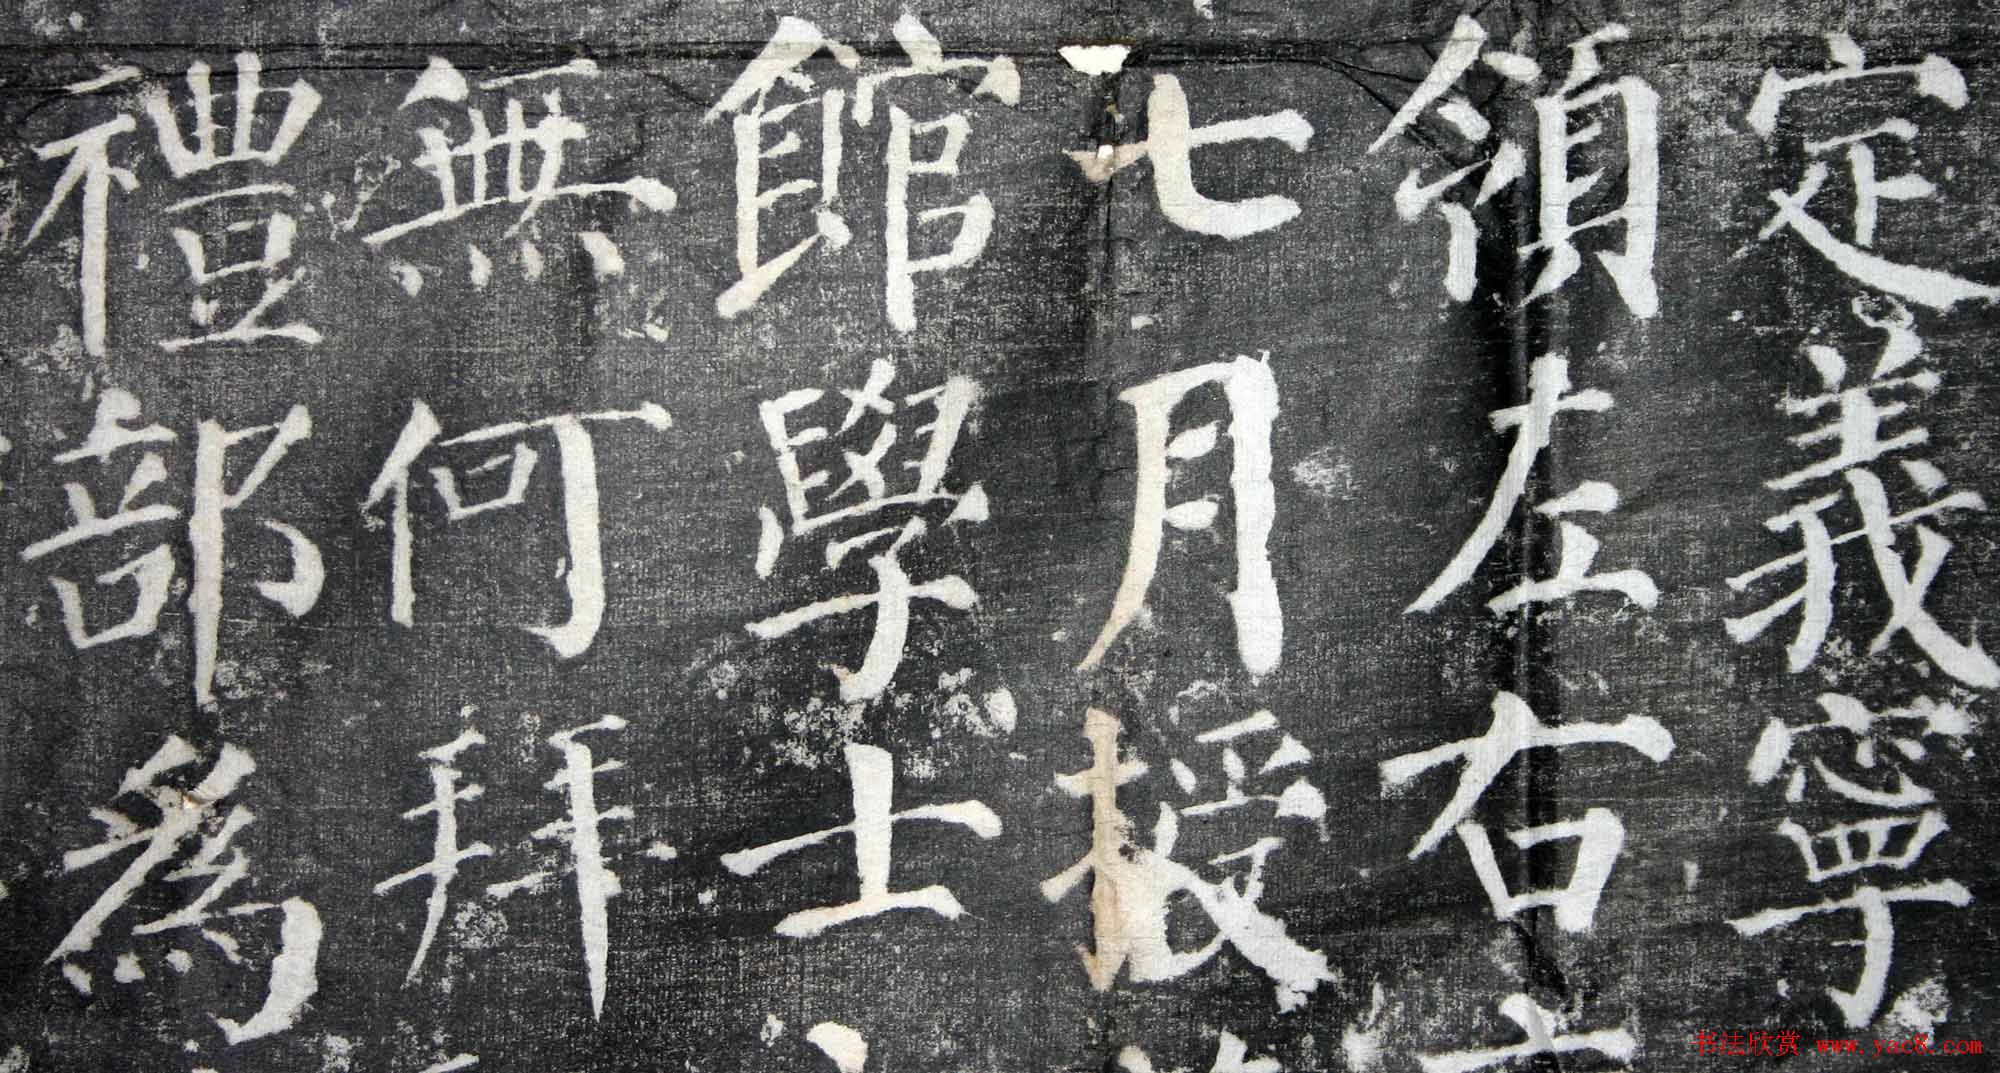 定義寧
領左右
七月授
館學士
無何拜
禮部為
书法欣赏 www.yac8.com